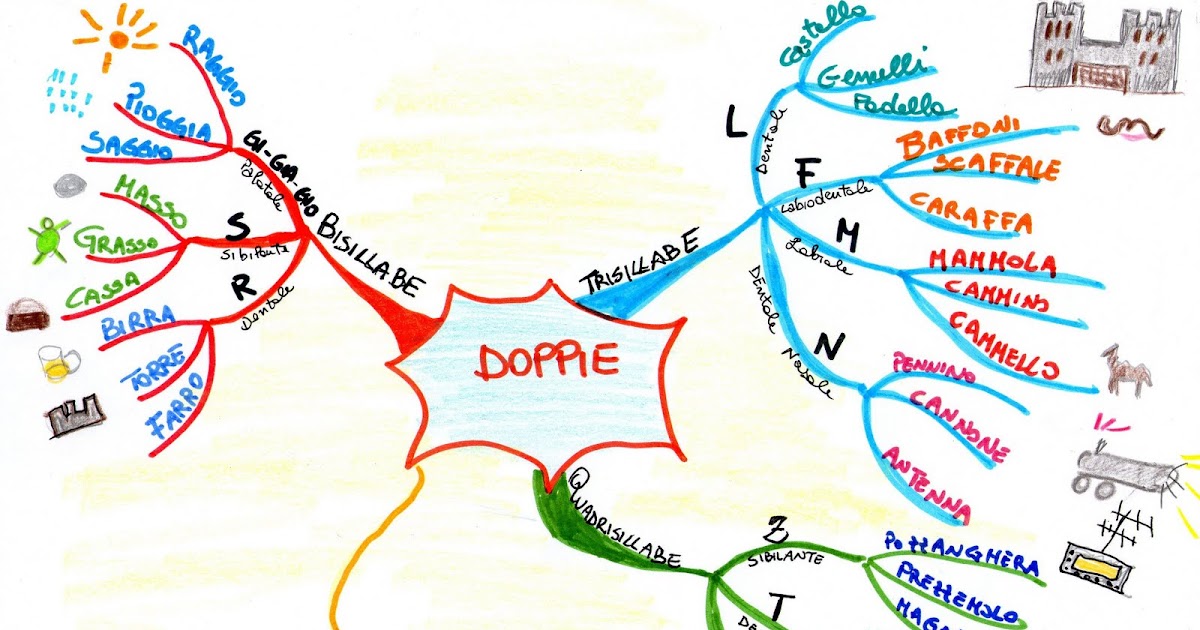 DOPPIE
BISILLABE
GI-GIA-GIO
Palatale
RAGGIO
PIOGGIA
SAGGIO
S
Sibilante
MASSO
GRASSO
CASSA
R
Dentale
BIRRA
TORRE
FARRO
TRISILLABE
L
Dentale
Castello
Gemelli
Padella
F
Labiodentale
BAFFONI
SCAFFALE
CARAFFA
M
Labiale
MAMMOLA
CAMMINO
CAMMELLO
N
DENTALE NASALE
PENNINO
CANNONE
ANTENNA
QUADRISILLABE
Z
SIBILANTE
POZZANGHERA
PREZZEMOLO
MAGA
T
DE